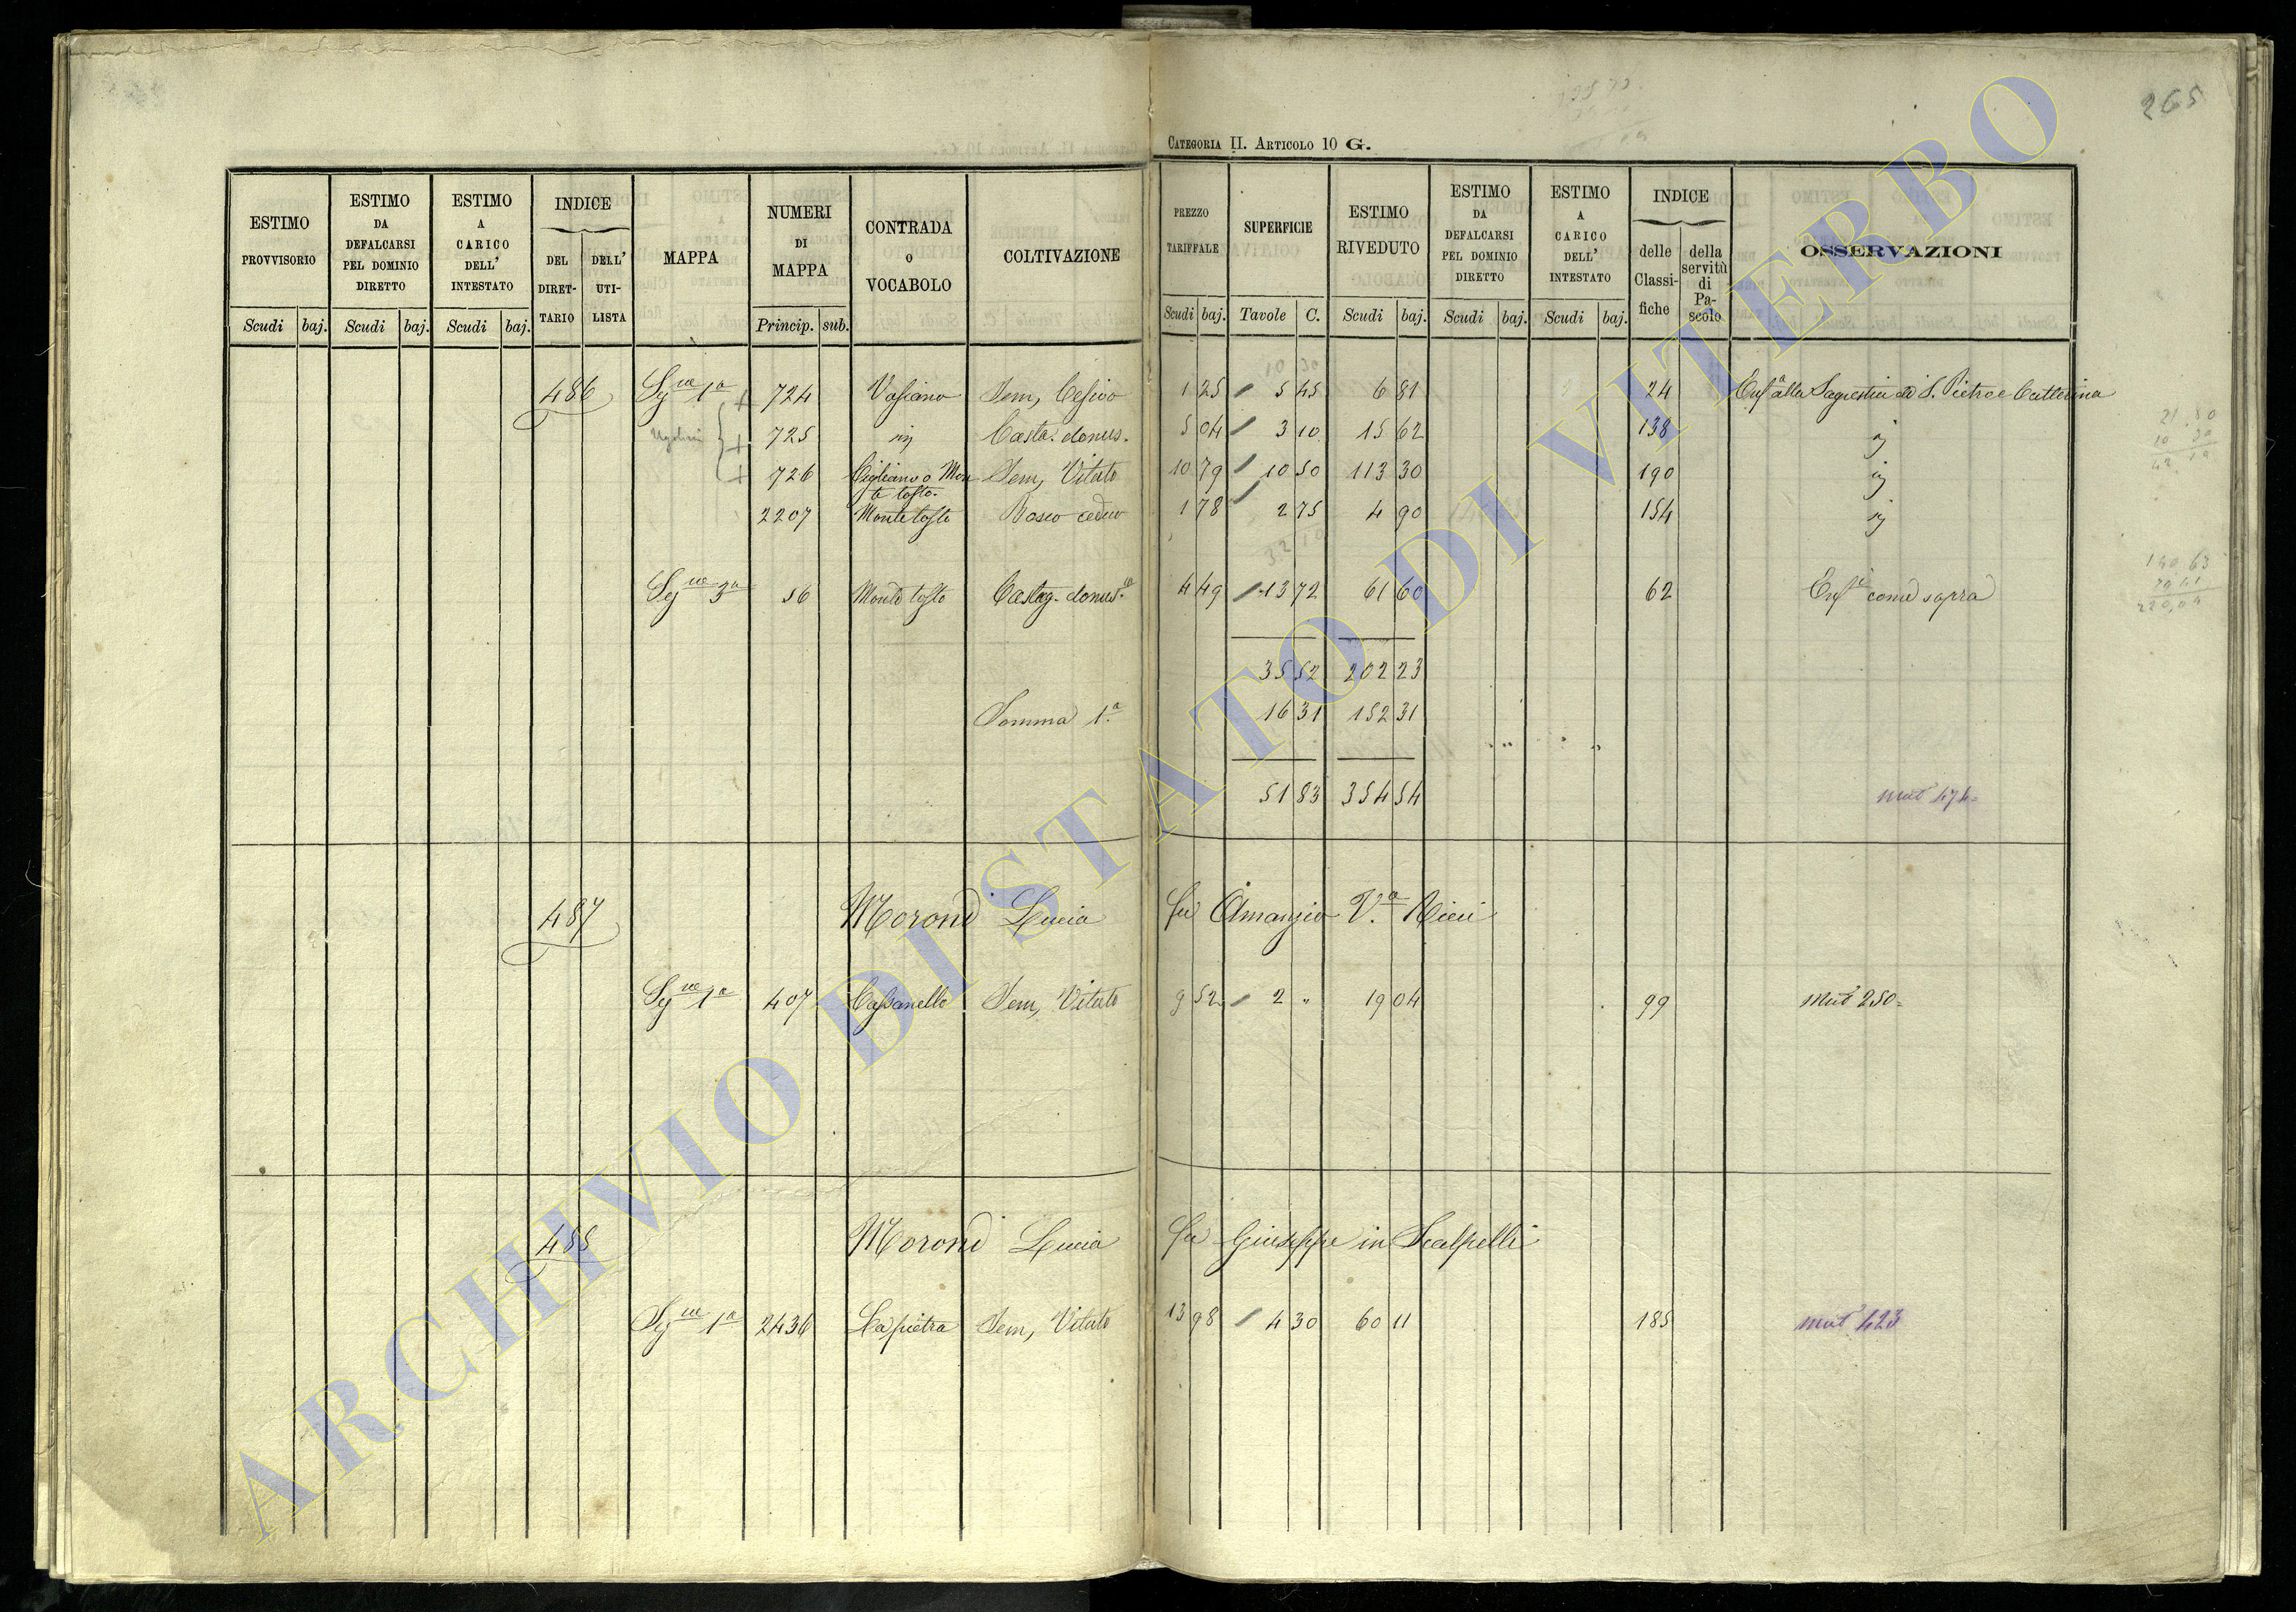 265
CATEGORIA II. ARTICOLO 10 G.
ESTIMO PROVVISORIO Scudi baj.
ESTIMO DA DEFALCARSI PEL DOMINIO DIRETTO Scudi baj.
ESTIMO A CARICO DELL' INTESTATO Scudi baj.
INDICE DEL DIRETTARIO DELL' UTILISTA
MAPPA
NUMERI DI MAPPA Princip. sub.
CONTRADA O VOCABOLO
COLTIVAZIONE
PREZZO TARIFFALE Scudi baj.
SUPERFICIE Tavole C.
ESTIMO RIVEDUTO Scudi baj.
ESTIMO DA DEFALCARSI PEL DOMINIO DIRETTO Scudi baj.
ESTIMO A CARICO DELL' INTESTATO Scudi baj.
INDICE delle Classifiche della servitù di Pascolo
OSSERVAZIONI
10 30
486 Sg.ne 1a + 724 Vasiano Sem, Cesivo 1 25 5 45 6 81 24 Enf.a alla Sagrestia di S. Pietro e Catterina
+ 725 Casta. donus. 5 04 3 10 15 62 138
+ 726 Cigliano o Monte tosto. Sem, Vitato 10 79 10 50 113 30 190
2207 Monte tosto Bosco ceduo 1 78 2 75 4 90 154
21 80
10 30
Sg.ne 3a 56 Monte tosto Castag. donus. 4 49 13 72 61 60 62 Enf.i come sopra
140,63
220,04
35 52 202 23
Somma 1.a 16 31 152 31
51 83 354 54
mut 474
487 Moroni Lucia fu Amanzio V.a Ricci
Sg.ne 1a 407 Cassanello Sem, Vitato 9 52 2 " 19 04 99 mut 250
488 Moroni Lucia fu Giuseppe in Scalpelli
Sg.ne 1a 2436 La pietra Sem, Vitato 13 98 4 30 60 11 185 mut 423
ARCHIVIO DI STATO DI VITERBO